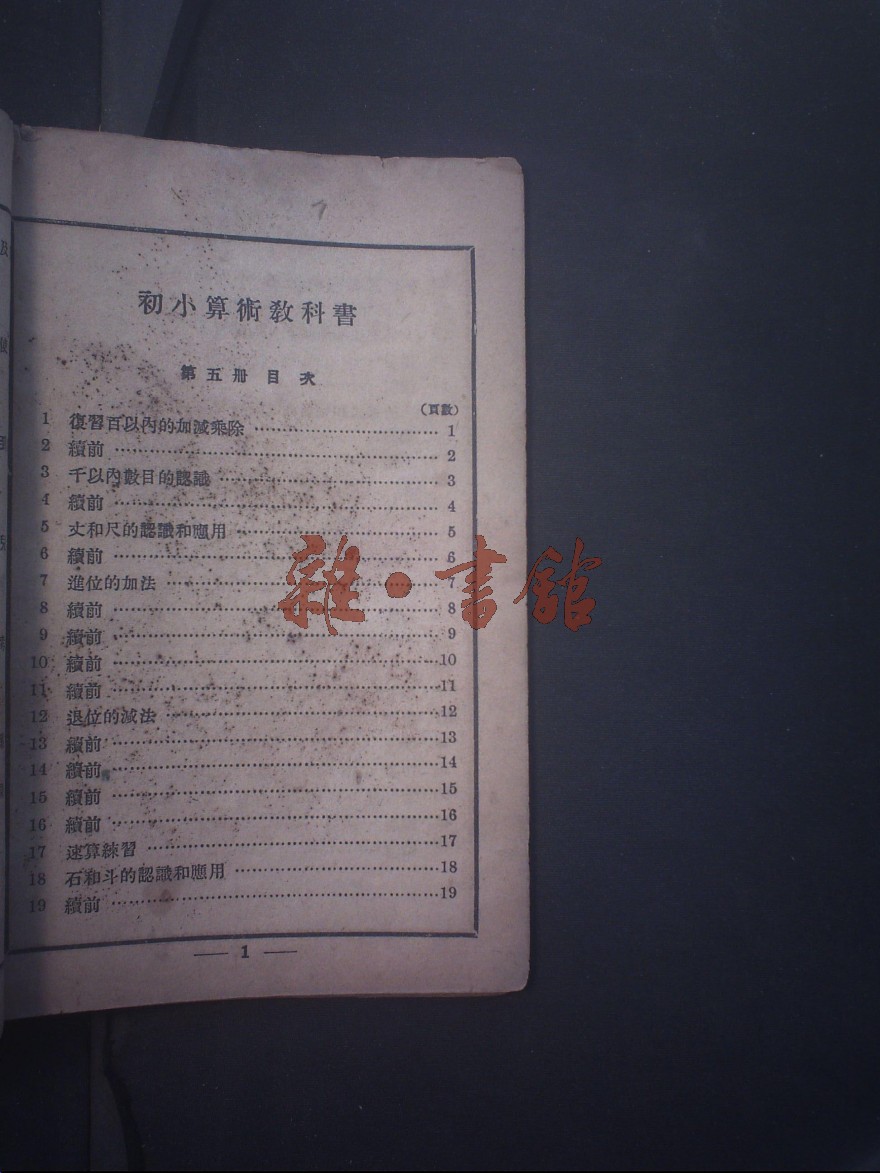 初小算術教科書
第五册 目次
(頁數)
1 復習百以內的加減乘除 1
2 續前 2
3 千以內數目的認識 3
4 續前 4
5 丈和尺的認識和應用 5
6 續前 6
7 進位的加法 7
8 續前 8
9 續前 9
10 續前 10
11 續前 11
12 退位的減法 12
13 續前 13
14 續前 14
15 續前 15
16 續前 16
17 速算練習 17
18 石和斗的認識和應用 18
19 續前 19
— 1 —
雜·書館